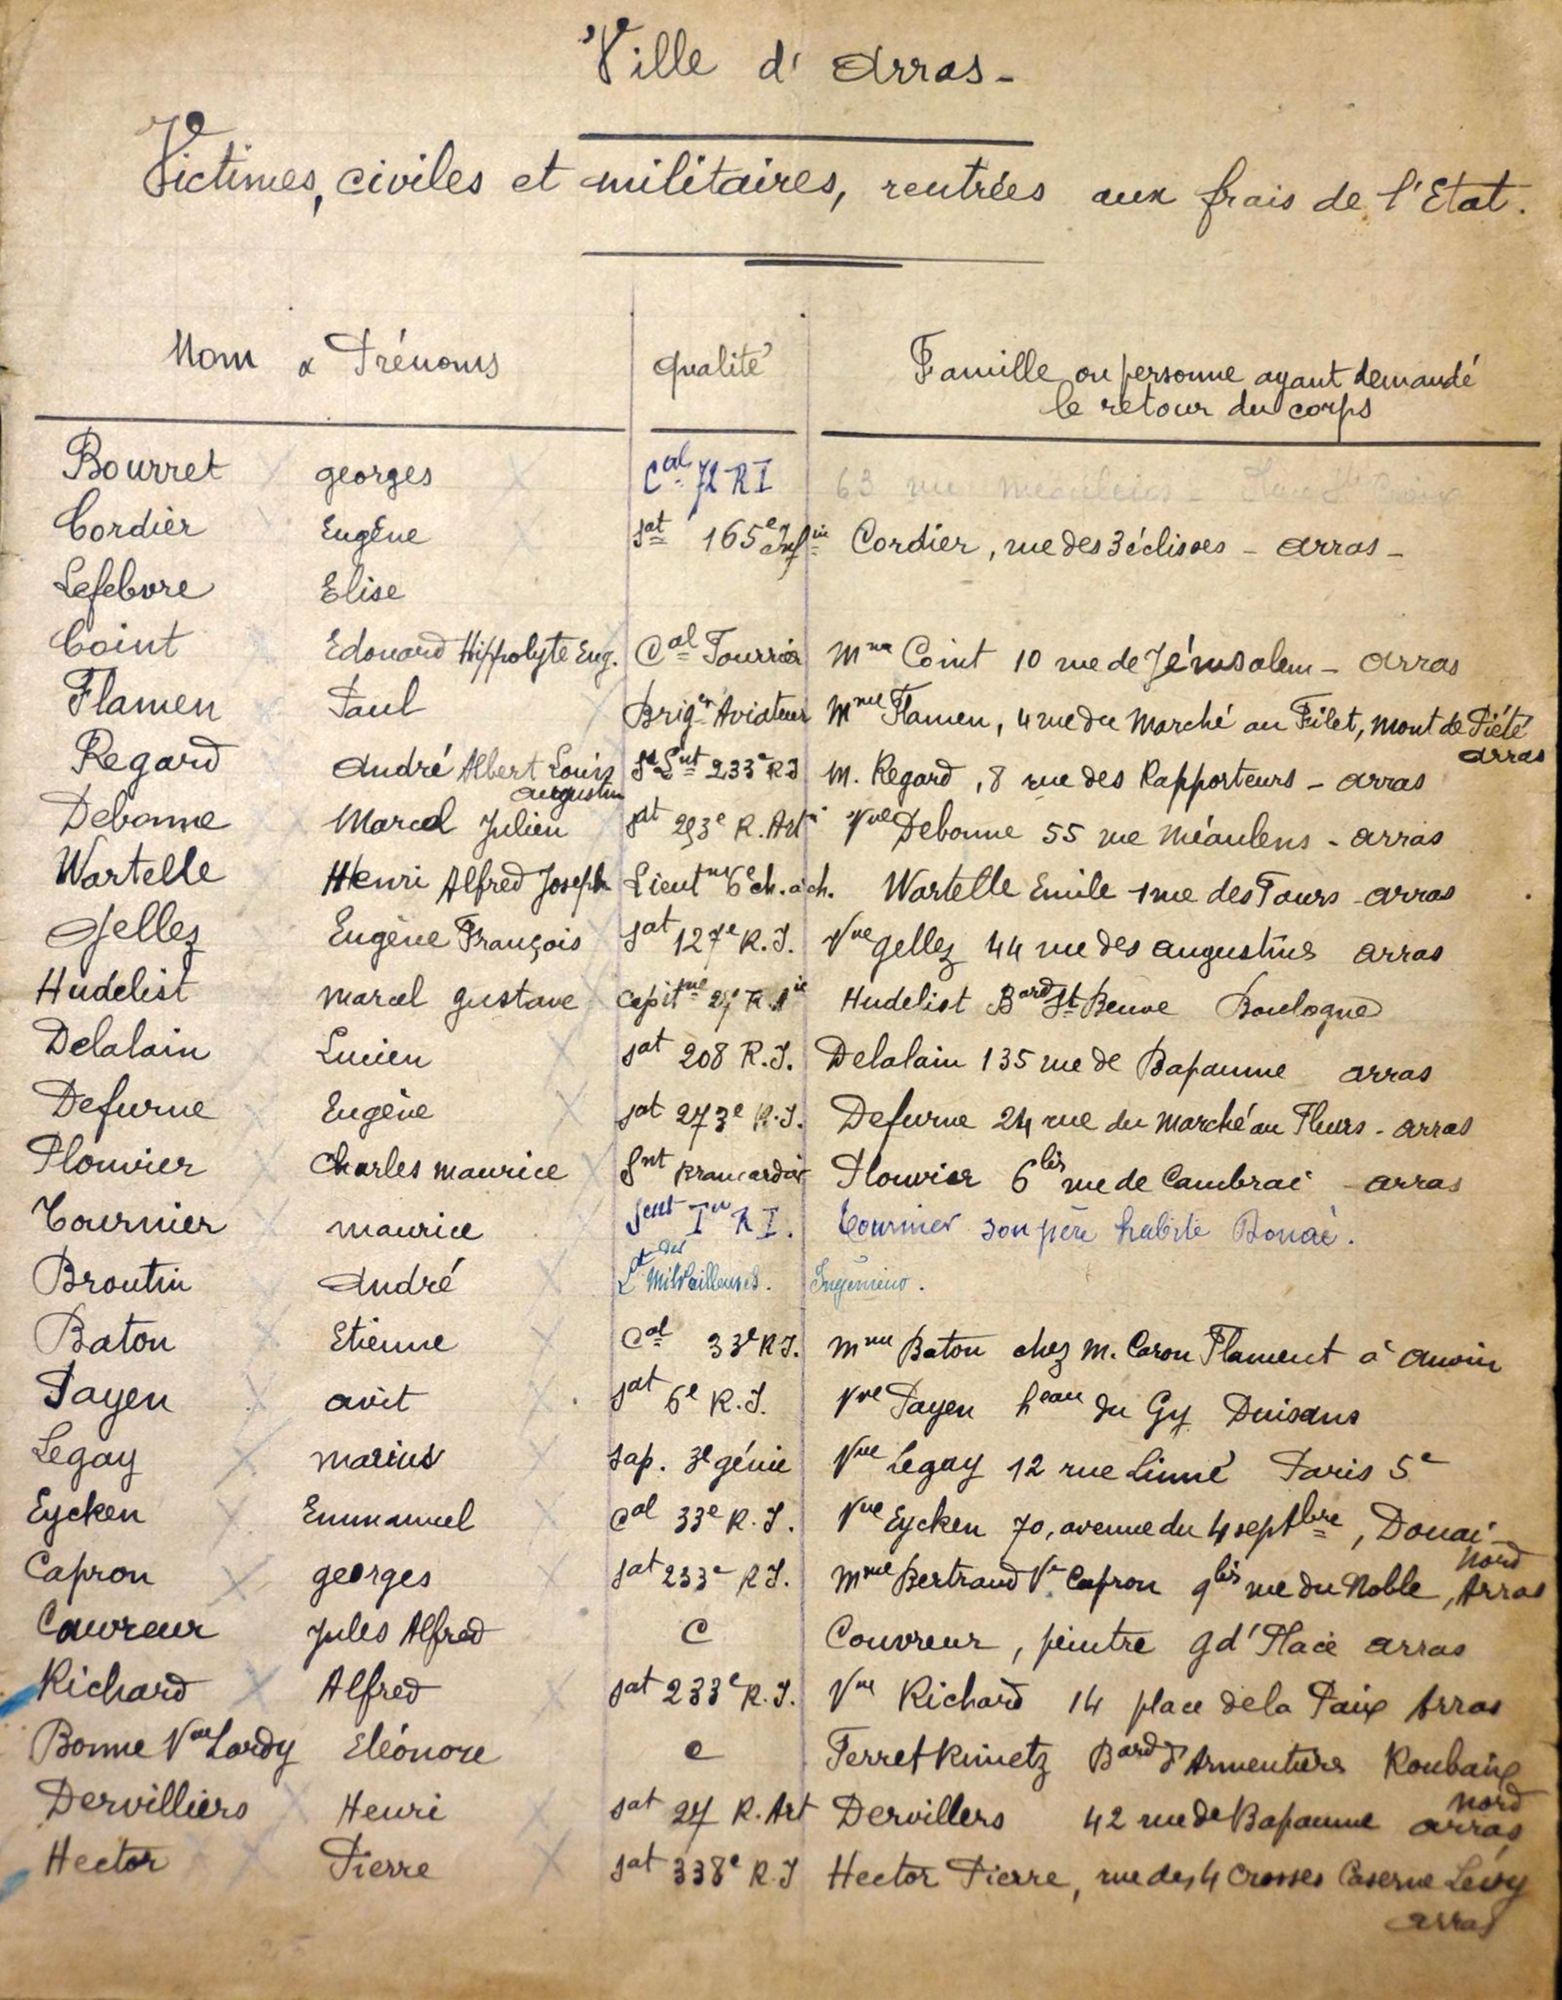 Ville d'Arras -
Victimes, civiles et militaires, rentrées aux frais de l'Etat.
Nom & Prénoms qualité Famille ou personne ayant demandé
le retour du corps
Bourret georges Cal 72 RI 63 rue Méaulens -
Cordier Eugène sat 165e Infie Cordier, rue des 3 éclisses - Arras -
Lefebvre Elise
Coint Edouard Hippolyte Eug. Cal Fourrier Mme Coint 10 rue de Jérusalem - Arras
Flamen Paul Briger Aviateur Mme Flamen, 4 rue du Marché au Filet, Mont de Piété
Arras
Regard André Albert Louis St Lnt 233e RI M. Regard, 8 rue des Rapporteurs - Arras
Augustin
Debonne Marcel Julien sat 293e R. Arti Vve Debonne 55 rue Méaulens - Arras
Wartelle Henri Alfred Joseph Lieutnt 6e ch. à ch. Wartelle Emile 1 rue des Tours - Arras
Gellez Eugène François sat 127e R.I. Vve Gellez 44 rue des Augustins Arras
Hudelist Marcel Gustave Capitne 27 R Aie Hudelist Bard St Beuve Boulogne
Delalain Lucien sat 208 R.I. Delalain 135 rue de Bapaume Arras
Defurne Eugène sat 273e R.I. Defurne 24 rue du Marché au Fleurs - Arras
Plouvier Charles Maurice Snt Brancardier Plouvier 6 bis rue de Cambrai - Arras
Tournier Maurice Sent Ier RI. Tournier son père habite Douai.
Broutin André Lt des Mitrailleuses. Ingénieur.
Baton Etienne Cal 33e R.I. Mme Baton chez M. Caron Flament à Anvin
Payen Avit sat 6e R.I. Vve Payen heau du Gy Duisans
Legay Marius sap. 3e génie Vve Legay 12 rue Linné Paris 5e
Eycken Emmanuel Cal 33e R.I. Vve Eycken 70, avenue du 4 septbre, Douai -
Nord
Capron georges sat 233e R.I. Mme Bertrand Ve Capron 9 bis rue du Noble, Arras
Couvreur Jules Alfred C Couvreur, peintre gd' Place Arras
Richard Alfred sat 233e R.I. Vve Richard 14 place de la Paix Arras
Bonne Vve Lardy Eléonore C Ferret Kimetz Bard d'Armentières Roubaix
Nord
Dervilliers Henri sat 27 R. Art Dervillers 42 rue de Bapaume Arras
Hector Pierre sat 338e R.I Hector Pierre, rue des 4 Crosses Caserne Lévy
Arras